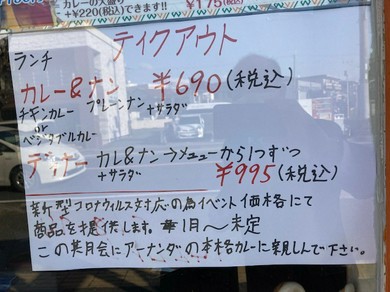 カレーの大盛り
+¥220(税込)できます!!
¥175(税込)
テイクアウト
ランチ
カレー&ナン ¥690(税込)
チキンカレー プレーンナン
or +サラダ
ベジタブルカレー
ディナー カレー&ナン→メニューから1つずつ
+サラダ ¥995(税込)
新型コロナウィルス対応の為イベント価格にて
商品を提供します。 1月〜未定
この機会にアーナンダの本格カレーに親しんで下さい。